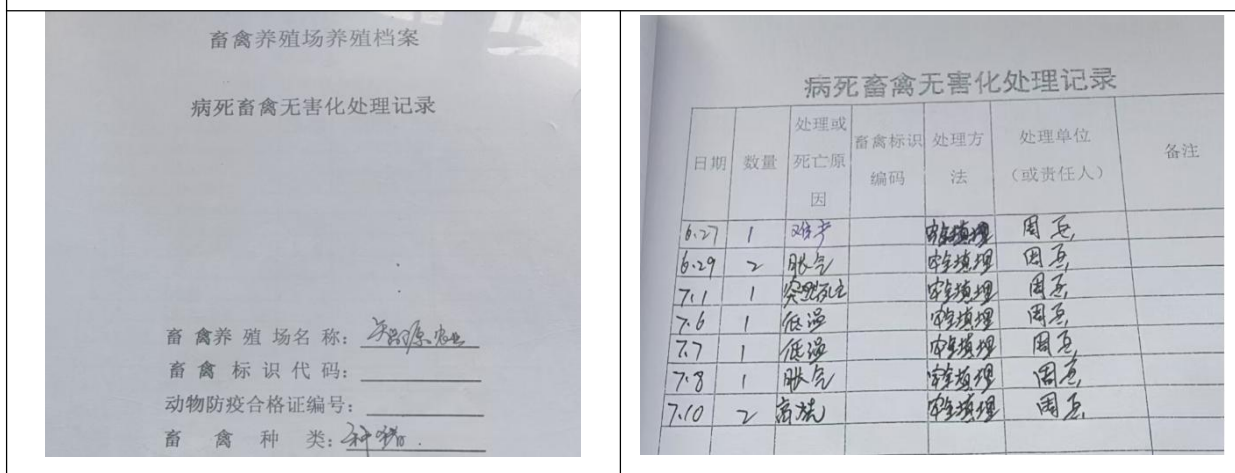 畜禽养殖场养殖档案
病死畜禽无害化处理记录
畜禽养殖场名称：
畜禽标识代码：
动物防疫合格证编号：
畜禽种类：种猪.
病死畜禽无害化处理记录
日期 数量 处理或死亡原因 畜禽标识编码 处理方法 处理单位（或责任人） 备注
6.27 1 难产 填埋 周
6.29 2 胀气 填埋 周
7.1 1 突然死亡 填埋 周
7.6 1 低温 填埋 周
7.7 1 低温 填埋 周
7.8 1 胀气 填埋 周
7.10 2 高烧 填埋 周